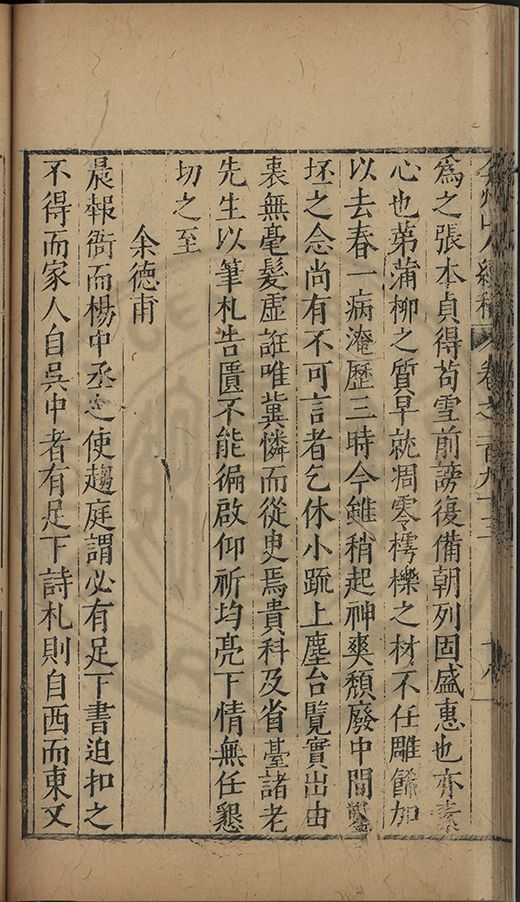 弇州山人續稿 卷之一百九十三 十八
爲之張本貞得苟雪前謗復備朝列固盛惠也亦素
心也苐蒲柳之質早就凋零樗櫟之材不任雕餙加
以去春一病淹歷三時今雖稍起神爽頽廢中間
坯之念尚有不可言者乞休小疏上塵台覽實出由
裏無毫髮虛誑唯冀憐而從臾焉貴科及省臺諸老
先生以筆札告匱不能徧啟仰祈均亮下情無任懇
切之至
余德甫
晨報衙而楊中丞之使趨庭謂必有足下書迫扣之
不得而家人自吳中者有足下詩札則自西而東又